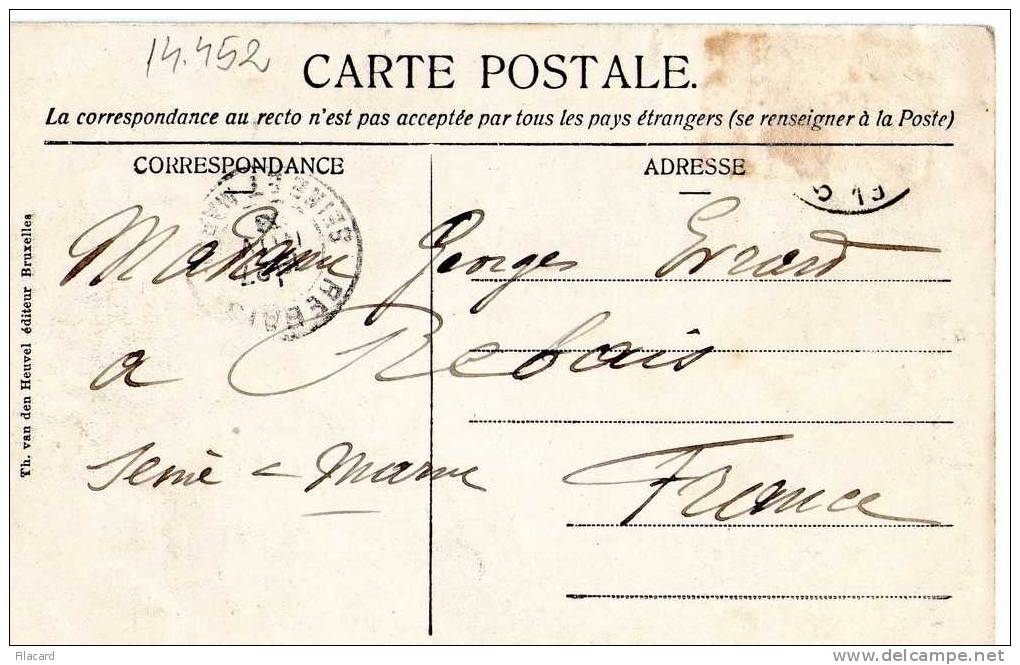 14.452
CARTE POSTALE.
La correspondance au recto n'est pas acceptée par tous les pays étrangers (se renseigner à la Poste)
CORRESPONDANCE
ADRESSE
SEINE REBAIS
Madame Georges Evrard
a Rebais
Seine = Marne
France
Th. van den Heuvel éditeur Bruxelles
Filacard
www.delcampe.net